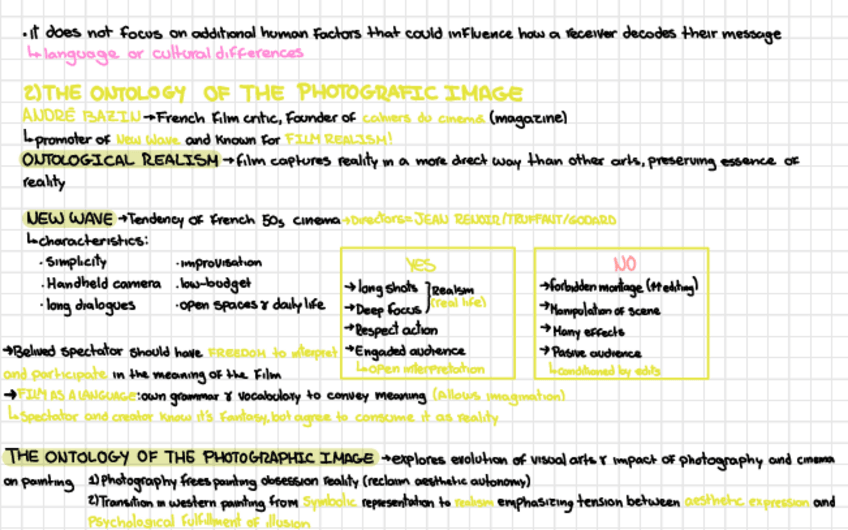 ·it does not focus on additional human factors that could influence how a receiver decodes their message
↳language or cultural differences
2)THE ONTOLOGY OF THE PHOTOGRAFIC IMAGE
ANDRÉ BAZIN→French film critic, founder of cahiers du cinema (magazine)
↳promoter of New Wave and known for FILM REALISM!
ONTOLOGICAL REALISM→film captures reality in a more direct way than other arts, preserving essence of
reality
NEW WAVE→Tendency of French 50s cinema→Directors=JEAN RENOIR/TRUFFAUT/GODARD
↳characteristics:
·Simplicity ·improvisation
·Handheld camera ·low-budget
·long dialogues ·open spaces & daily life
YES
→long shots ] Realism
→Deep focus (real life)
→Respect action
→Engaded audience
↳open interpretation
NO
→forbidden montage (editing)
→Manipulation of scene
→Many effects
→Pasive audience
↳conditioned by edits
→Belived spectator should have FREEDOM to interpret
and participate in the meaning of the film
→FILM AS A LANGUAGE:own grammar & vocabulary to convey meaning (Allows imagination)
↳Spectator and creator know it's fantasy, but agree to consume it as reality
THE ONTOLOGY OF THE PHOTOGRAPHIC IMAGE→explores evolution of visual arts & impact of photography and cinema
on painting 1)Photography frees painting obsession reality (reclaim aesthetic autonomy)
2)Transition in western painting from Symbolic representation to realism emphasizing tension between aesthetic expression and
Psychological fulfillment of illusion